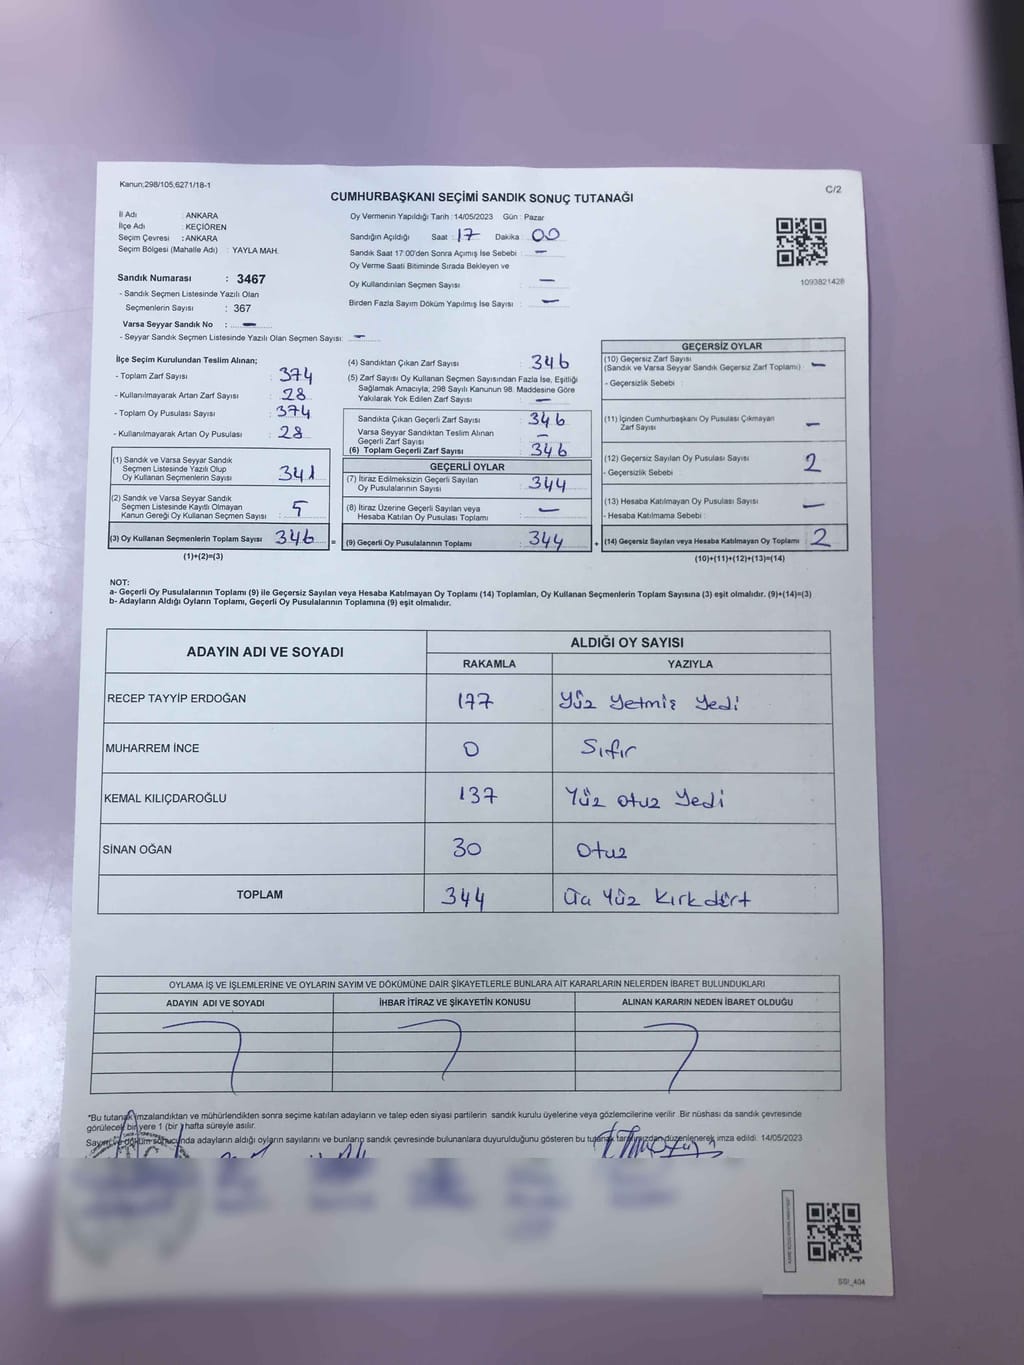 Kanun;298/105,6271/18-1
C/2
CUMHURBAŞKANI SEÇİMİ SANDIK SONUÇ TUTANAĞI
İl Adı : ANKARA
İlçe Adı : KEÇİÖREN
Seçim Çevresi : ANKARA
Seçim Bölgesi (Mahalle Adı) : YAYLA MAH.
Sandık Numarası : 3467
- Sandık Seçmen Listesinde Yazılı Olan
Seçmenlerin Sayısı : 367
Varsa Seyyar Sandık No : —
- Seyyar Sandık Seçmen Listesinde Yazılı Olan Seçmen Sayısı: —
Oy Vermenin Yapıldığı Tarih : 14/05/2023 Gün : Pazar
Sandığın Açıldığı Saat : 17 Dakika : 00
Sandık Saat 17:00'den Sonra Açımış İse Sebebi : —
Oy Verme Saati Bitiminde Sırada Bekleyen ve
Oy Kullandırılan Seçmen Sayısı : —
Birden Fazla Sayım Döküm Yapılmış İse Sayısı : —
1093821428
İlçe Seçim Kurulundan Teslim Alınan;
- Toplam Zarf Sayısı : 374
- Kullanılmayarak Artan Zarf Sayısı : 28
- Toplam Oy Pusulası Sayısı : 374
- Kullanılmayarak Artan Oy Pusulası : 28
(1) Sandık ve Varsa Seyyar Sandık
Seçmen Listesinde Yazılı Olup
Oy Kullanan Seçmenlerin Sayısı : 341
(2) Sandık ve Varsa Seyyar Sandık
Seçmen Listesinde Kayıtlı Olmayan
Kanun Gereği Oy Kullanan Seçmen Sayısı : 5
(3) Oy Kullanan Seçmenlerin Toplam Sayısı : 346 =
(1)+(2)=(3)
(4) Sandıktan Çıkan Zarf Sayısı : 346
(5) Zarf Sayısı Oy Kullanan Seçmen Sayısından Fazla İse, Eşitliği
Sağlamak Amacıyla, 298 Sayılı Kanunun 98. Maddesine Göre
Yakılarak Yok Edilen Zarf Sayısı : —
Sandıkta Çıkan Geçerli Zarf Sayısı : 346
Varsa Seyyar Sandıktan Teslim Alınan
Geçerli Zarf Sayısı : —
(6) Toplam Geçerli Zarf Sayısı : 346
GEÇERLİ OYLAR
(7) İtiraz Edilmeksizin Geçerli Sayılan
Oy Pusulalarının Sayısı : 344
(8) İtiraz Üzerine Geçerli Sayılan veya
Hesaba Katılan Oy Pusulası Toplamı : —
(9) Geçerli Oy Pusulalarının Toplamı : 344 +
GEÇERSİZ OYLAR
(10) Geçersiz Zarf Sayısı
(Sandık ve Varsa Seyyar Sandık Geçersiz Zarf Toplamı) : —
- Geçersizlik Sebebi :
(11) İçinden Cumhurbaşkanı Oy Pusulası Çıkmayan
Zarf Sayısı : —
(12) Geçersiz Sayılan Oy Pusulası Sayısı : 2
- Geçersizlik Sebebi :
(13) Hesaba Katılmayan Oy Pusulası Sayısı : —
- Hesaba Katılmama Sebebi :
(14) Geçersiz Sayılan veya Hesaba Katılmayan Oy Toplamı : 2
(10)+(11)+(12)+(13)=(14)
NOT:
a- Geçerli Oy Pusulalarının Toplamı (9) ile Geçersiz Sayılan veya Hesaba Katılmayan Oy Toplamı (14) Toplamları, Oy Kullanan Seçmenlerin Toplam Sayısına (3) eşit olmalıdır. (9)+(14)=(3)
b- Adayların Aldığı Oyların Toplamı, Geçerli Oy Pusulalarının Toplamına (9) eşit olmalıdır.
ADAYIN ADI VE SOYADI
ALDIĞI OY SAYISI
RAKAMLA YAZIYLA
RECEP TAYYİP ERDOĞAN 177 Yüz Yetmiş Yedi
MUHARREM İNCE 0 Sıfır
KEMAL KILIÇDAROĞLU 137 Yüz Otuz Yedi
SİNAN OĞAN 30 Otuz
TOPLAM 344 Üç Yüz Kırk dört
OYLAMA İŞ VE İŞLEMLERİNE VE OYLARIN SAYIM VE DÖKÜMÜNE DAİR ŞİKAYETLERLE BUNLARA AİT KARARLARIN NELERDEN İBARET BULUNDUKLARI
ADAYIN ADI VE SOYADI İHBAR İTİRAZ VE ŞİKAYETİN KONUSU ALINAN KARARIN NEDEN İBARET OLDUĞU
*Bu tutanak imzalandıktan ve mühürlendikten sonra seçime katılan adayların ve talep eden siyasi partilerin sandık kurulu üyelerine veya gözlemcilerine verilir. Bir nüshası da sandık çevresinde
görülecek bir yere 1 (bir) hafta süreyle asılır.
Sayım ve döküm sonucunda adayların aldığı oyların sayılarını ve bunların sandık çevresinde bulunanlara duyurulduğunu gösteren bu tutanak tarafımızdan düzenlenerek imza edildi. 14/05/2023
SSI_404